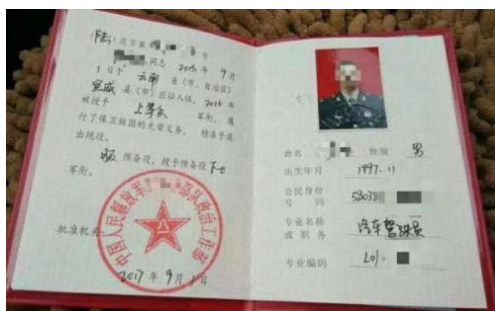 (陆) 退字第 号
同志 2015 年 9 月
1 日于 云南 省（市、自治区）
宣威 县（市）应征入伍，2016 年
被授予 上等兵 军衔，履
行了保卫祖国的光荣义务，特准予退
出现役。
服 预备役，授予预备役 下士
军衔。
批准机关
中国人民解放军 部队政治工作部
2017 年 9 月 1 日
姓名 性别 男
出生年月 1997.11
公民身份
号 码 530381
专业名称 汽车驾驶员
或 职 务
专业编码